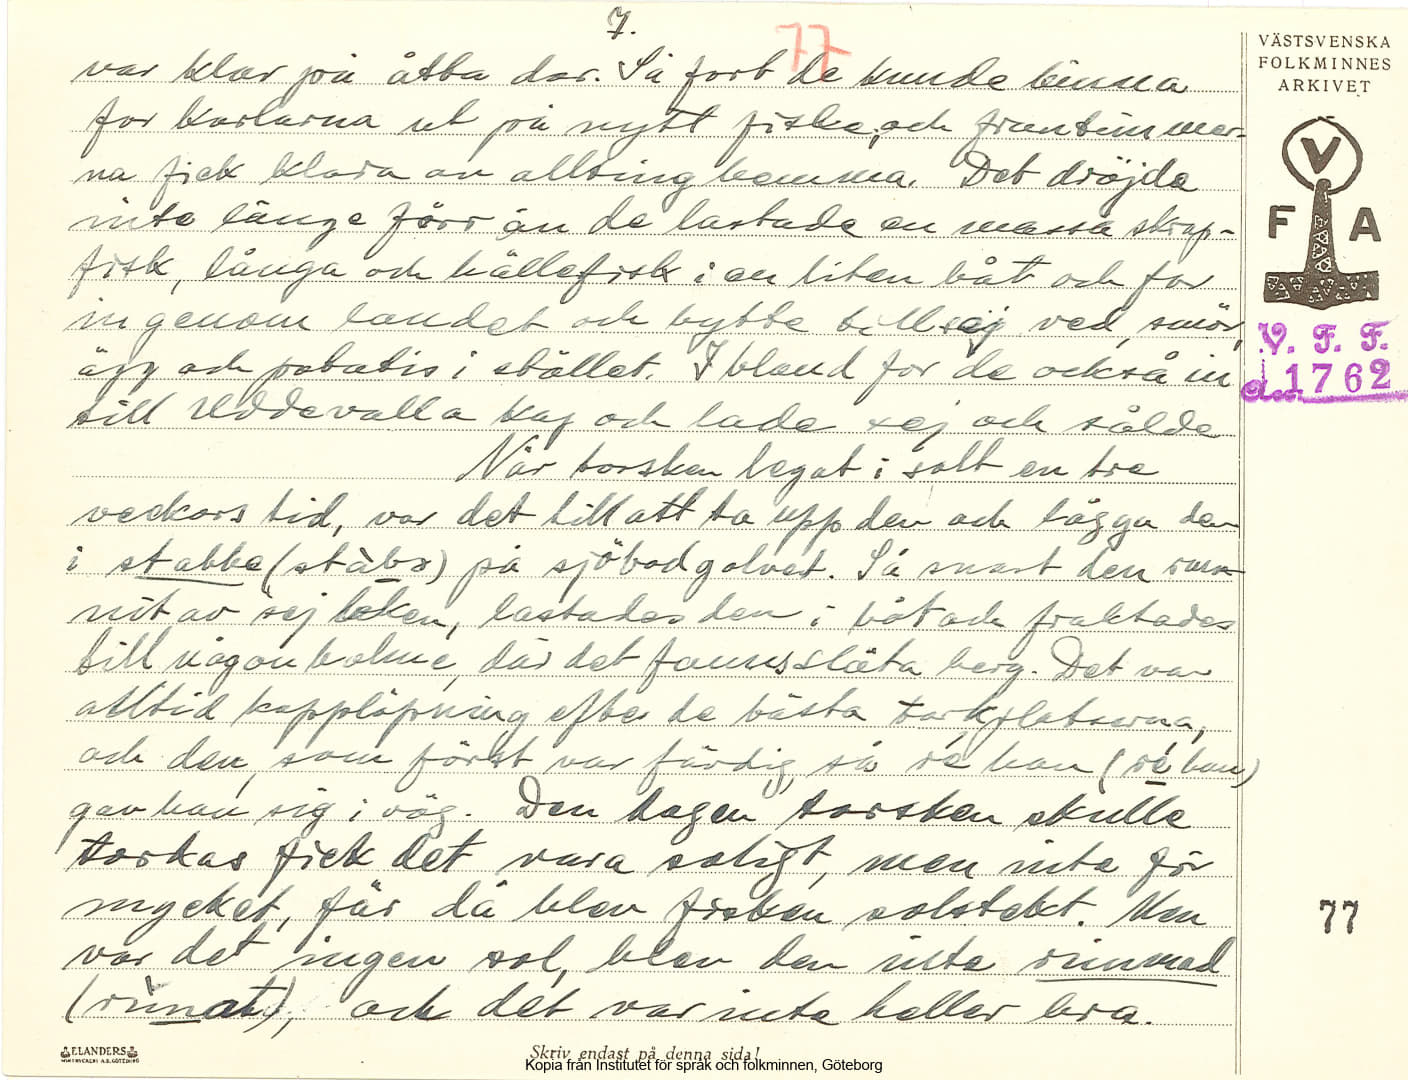 7.
77
VÄSTSVENSKA
FOLKMINNES
ARKIVET
var klar på åtta dar. Så fort de kunde hinna
for karlarna ut på nytt fiske, och fruntimmer-
na fick klara av allting hemma. Det dröjde
inte länge förr än de lastade en massa skrap-
fisk, långa och hällefisk i en liten båt och for
in genom landet och bytte till sej ved, smör,
ägg och potatis i stället. Ibland for de också in
till Uddevalla kaj och lade sej och sålde
När torsken legat i salt en tre
veckors tid, var det till att ta upp den och lägga den
i stabbe (stàbə) på sjöbodgolvet. Så snart den runn-
nit av sej leken, lastades den i båt och fraktades
till någon holme, där det fanns släta berg. Det var
alltid kapplöpning efter de bästa torkplatserna,
och den, som först var färdig, så ré han (ré han)
gav han sig i väg. Den dagen torsken skulle
torkas fick det vara soligt, men inte för
mycket, får då blev fisken solstekt. Men
var det ingen sol, blev den inte rimmad
(rìmat), och det var inte heller bra.
V
F A
V. F. F.
1762
77
ELANDERS
Skriv endast på denna sida!
Kopia från Institutet för språk och folkminnen, Göteborg